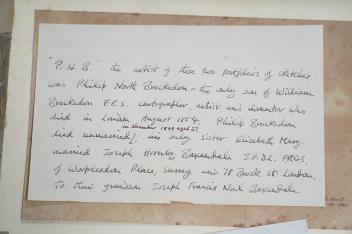 "P. N. B." the artist of these two portfolios of sketches,
was Philip North Brockedon – the only son of William
Brockedon F.R.S. cartographer, artist and inventor who
died in London August 1854. Philip Brockedon
in November 1849 aged 27.
died unmarried; his only sister Elizabeth Mary
married Joseph Hornby Baxendale J.P. D.L. FRGS.
of Worplesdon Place, Surrey and 78 Brook St. London.
To their grandson Joseph Francis Noel Baxendale